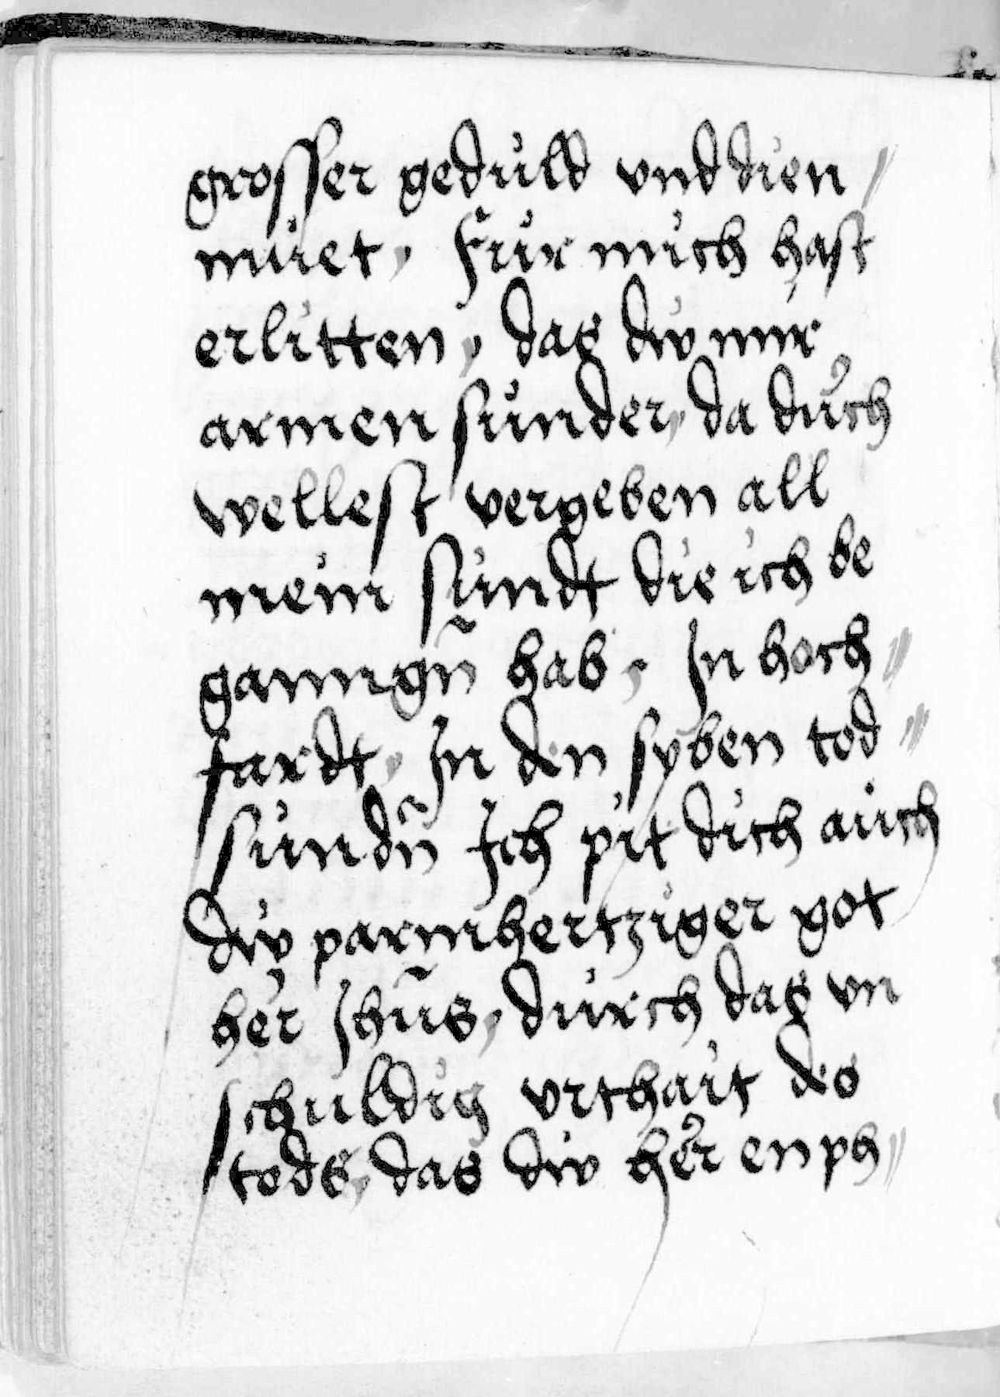 grosser geduld vnd dien /
müet, Für mich hast
erlitten, das dw mir
armen sünder, da durch
wellest vergeben all
mein sündt die ich be
ganngn̄ hab, In hoch //
fardt, In den syben tod //
sündn̄ Ich pit dich auch
dw parmhertziger got
her Jhūs, durch das vn
schuldig vrthait des
tods, das dw her enph //